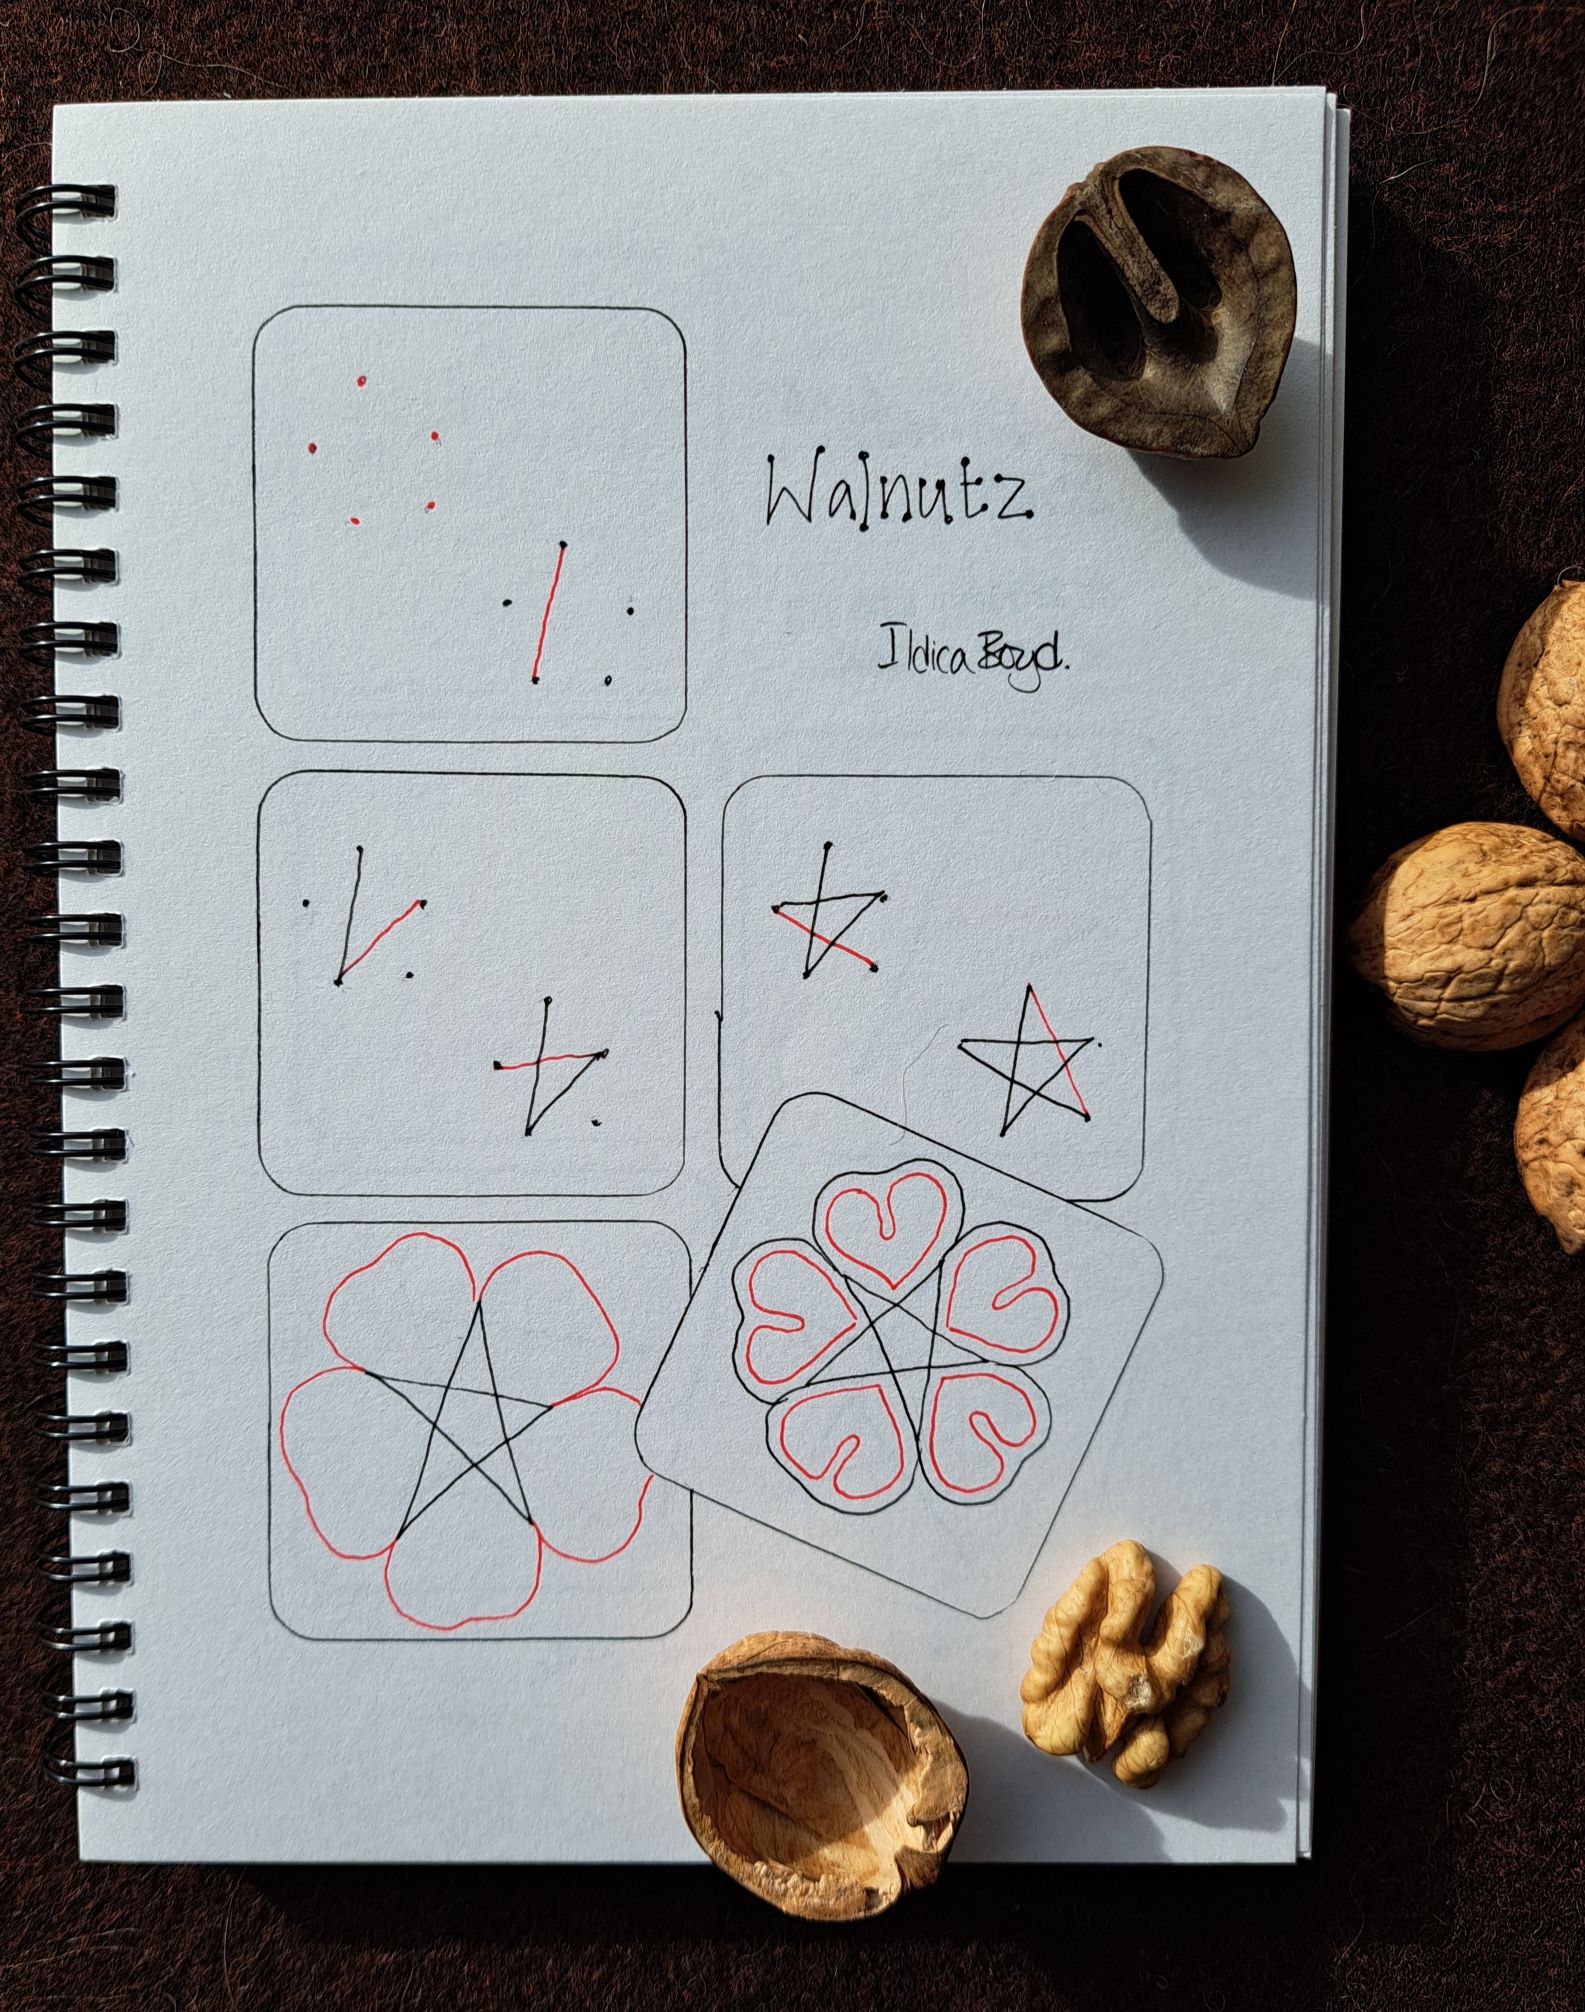 Walnutz
Ildica Boyd.